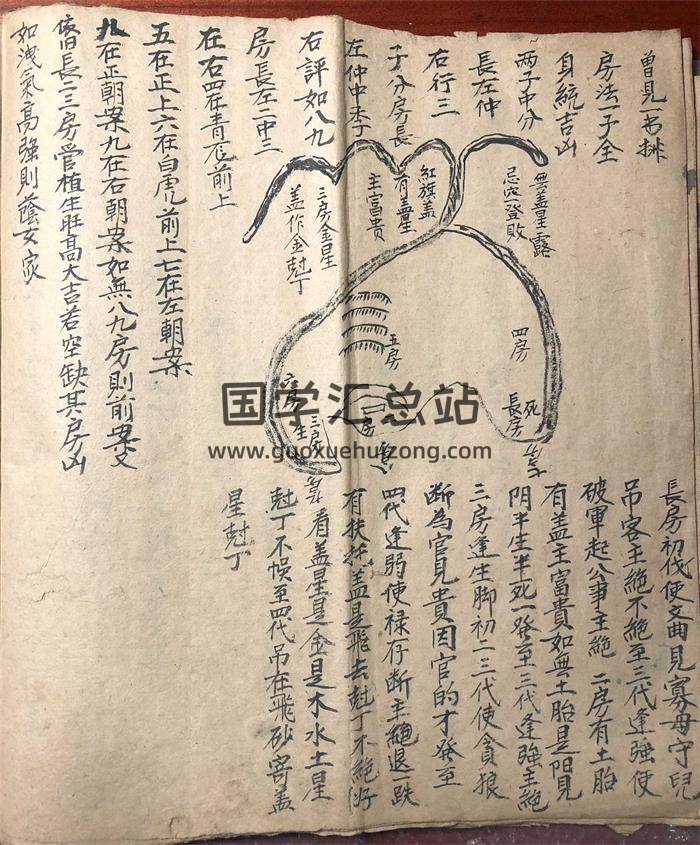 曾見一书排
房法一子全
身統吉凶
两子中分
長左仲
右行三
子分房長
左仲中季
右評如八九
房長左二中三
在右四在青龙前上
五在正上六在白虎前上七在左朝案
八在正朝案九在右朝案如無八九房則前案又
依旧長二三房管植生旺高大吉若空缺其房凶
如洩氣高強則蔭女家
無盖星露
忌空登敗
紅旗盖
有盖星
主富貴
三房金星
盖作金尅丁
四房
五房
死
長房
二房
六房
生
三房
www.guoxuehuizong.com
国学汇总站
長房初代使文曲見寡母守兒
吊客主絶不絶至三代逢強使
破軍起公事主絶 二房有土胎
有盖主富貴如無土胎是陽見
阴半生半死一發至三代逢強主絶
三房逢生脚初二三代使貪狼
断為官見貴因官的才發至
四代逢弱使禄存断主絶退一跌
有扶盖是飛去尅丁不絶好
看盖星是金是木水土星
尅丁不悞至四代吊在飛砂寄盖
星尅丁